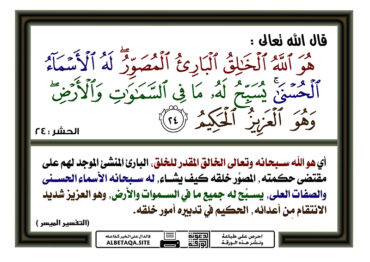 قال الله تعالى :
هُوَ ٱللَّهُ ٱلْخَٰلِقُ ٱلْبَارِئُ ٱلْمُصَوِّرُ ۖ لَهُ ٱلْأَسْمَآءُ
ٱلْحُسْنَىٰ ۚ يُسَبِّحُ لَهُۥ مَا فِى ٱلسَّمَٰوَٰتِ وَٱلْأَرْضِ ۖ
وَهُوَ ٱلْعَزِيزُ ٱلْحَكِيمُ ٢٤
الحشر : ٢٤
أي هو الله سبحانه وتعالى الخالق المقدر للخلق، البارئ المنشئ الموجد لهم على
مقتضى حكمته, المصوِّر خلقه كيف يشاء, له سبحانه الأسماء الحسنى
والصفات العلى, يسبّح له جميع ما في السموات والأرض, وهو العزيز شديد
الانتقام من أعدائه, الحكيم في تدبيره أمور خلقه.
(التفسير الميسر)
احرص على طباعة
ونشر هذه الورقة
الدال على الخير كفاعله
ALBETAQA.SITE